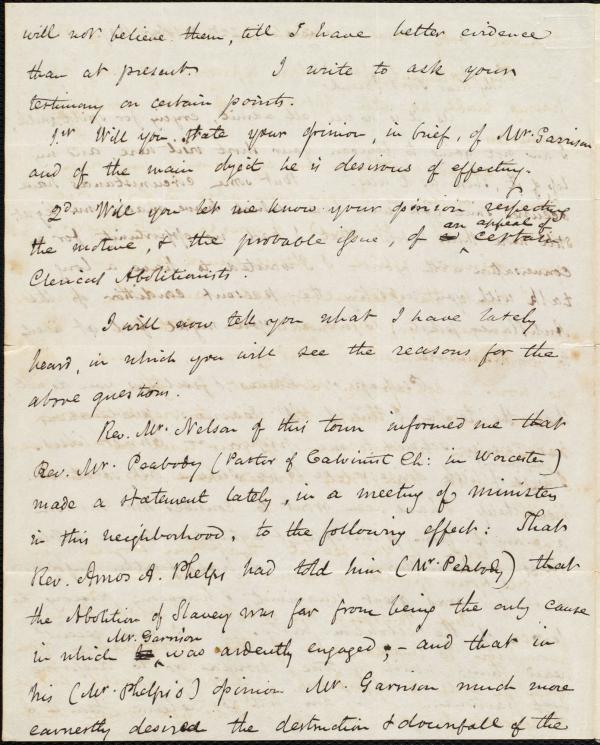 will not believe them, till I have better evidence
than at present. I write to ask your
testimony on certain points.
1st Will you state your opinion, in brief, of Mr. Garrison
and of the main object he is desirous of effecting.
2d. Will you let me know your opinion respecting
the motive, & the probable issue, of an appeal of certain
Clerical Abolitionists.
I will now tell you what I have lately
heard, in which you will see the reasons for the
above questions.
Rev. Mr. Nelson of this town informed me that
Rev. Mr. Peabody (Pastor of Calvinist Ch: in Worcester)
made a statement lately, in a meeting of ministers
in this neighborhood, to the following effect: That
Rev. Amos A. Phelps had told him (Mr. Peabody) that
the Abolition of Slavery was far from being the only cause
in which Mr. Garrison was ardently engaged; - and that in
his (Mr. Phelps's) opinion Mr. Garrison much more
earnestly desired the destruction & downfall of the